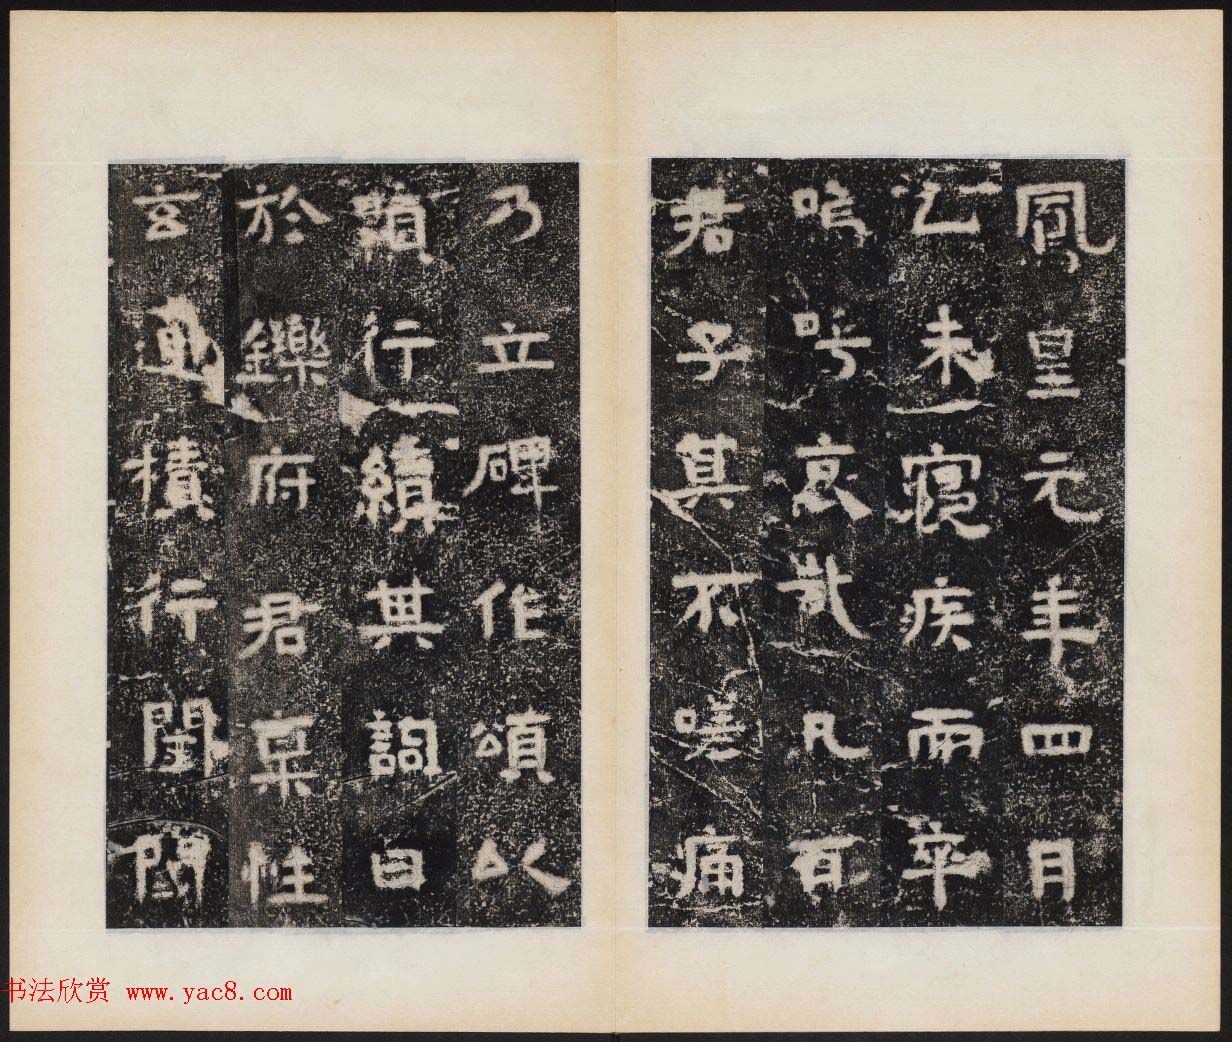 鳳皇元年四月
乙未寢疾而卒
嗚呼哀哉凡百
君子莫不嗟痛
乃立碑作頌以
顯行績其詞曰
於鑠府君稟性
玄通積行閨閤
书法欣赏 www.yac8.com